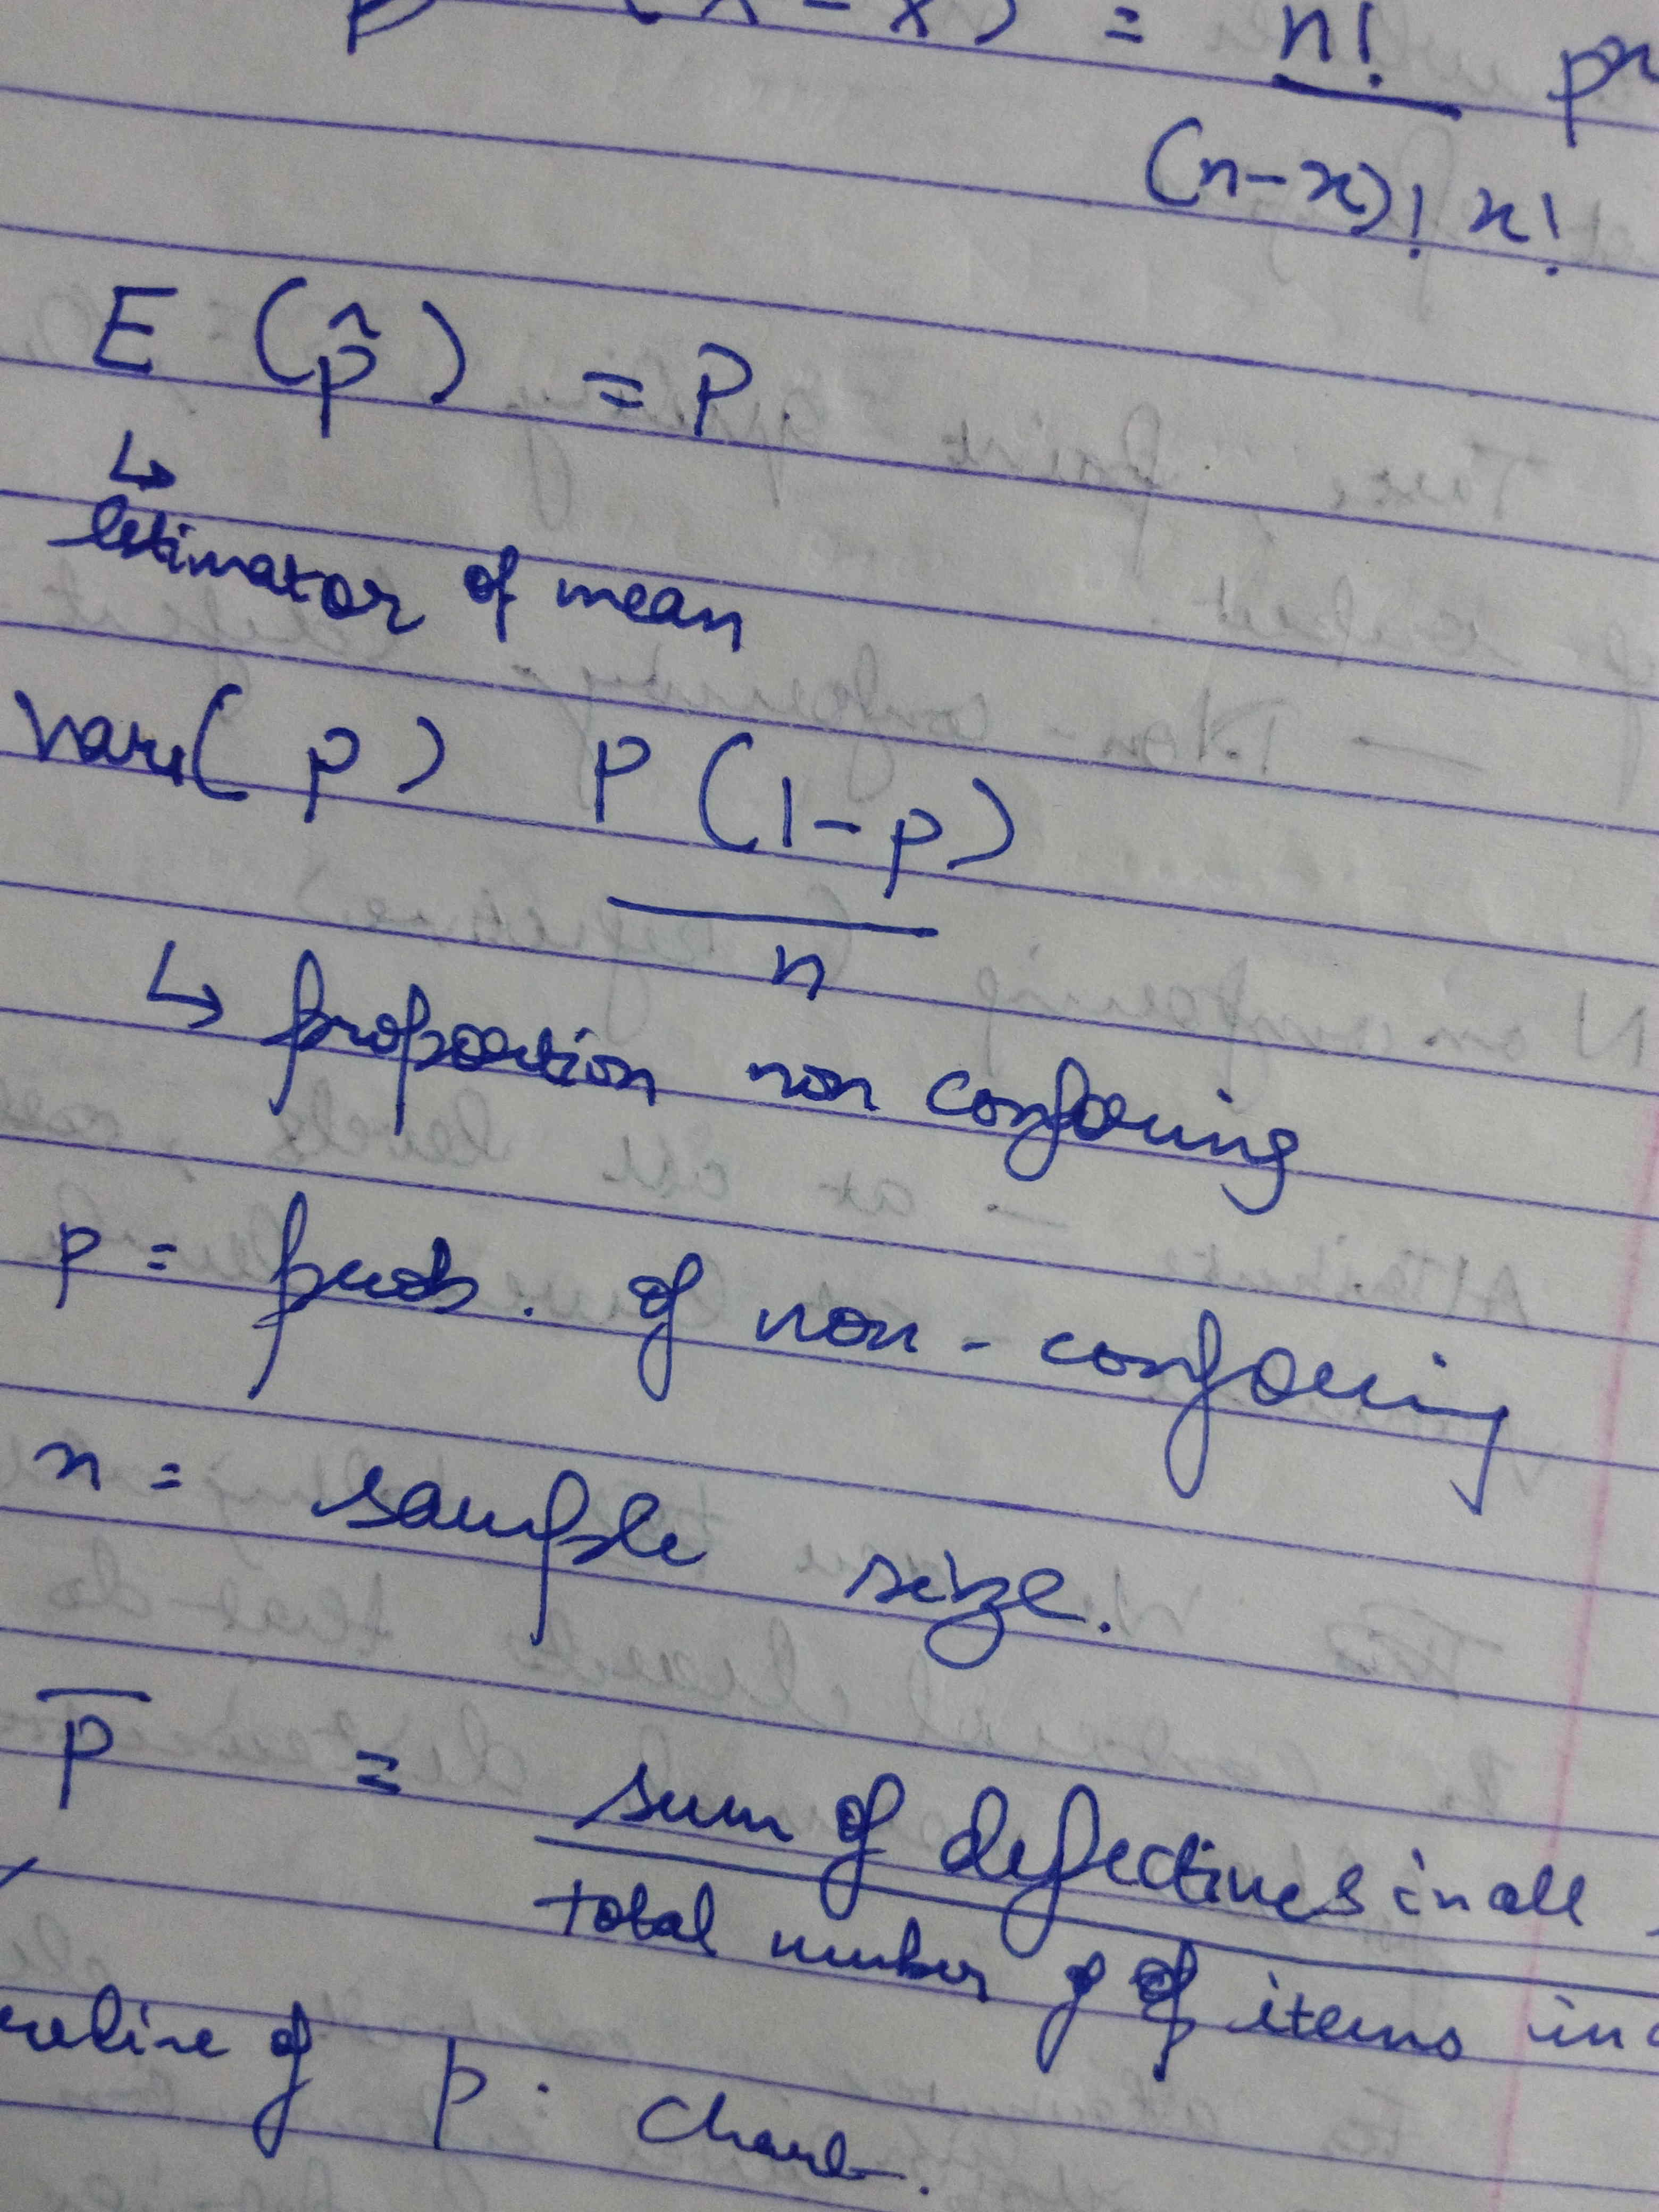 p (X - x) = n! p
(n-x)! x!
E (p̂) = P
↳
estimator of mean
var( p) P (1-p)
n
↳ proportion non conforming
p = prob. of non-conforming
n = sample size.
p̄ = sum of defectives in all
total number of of items in
of p. chart.